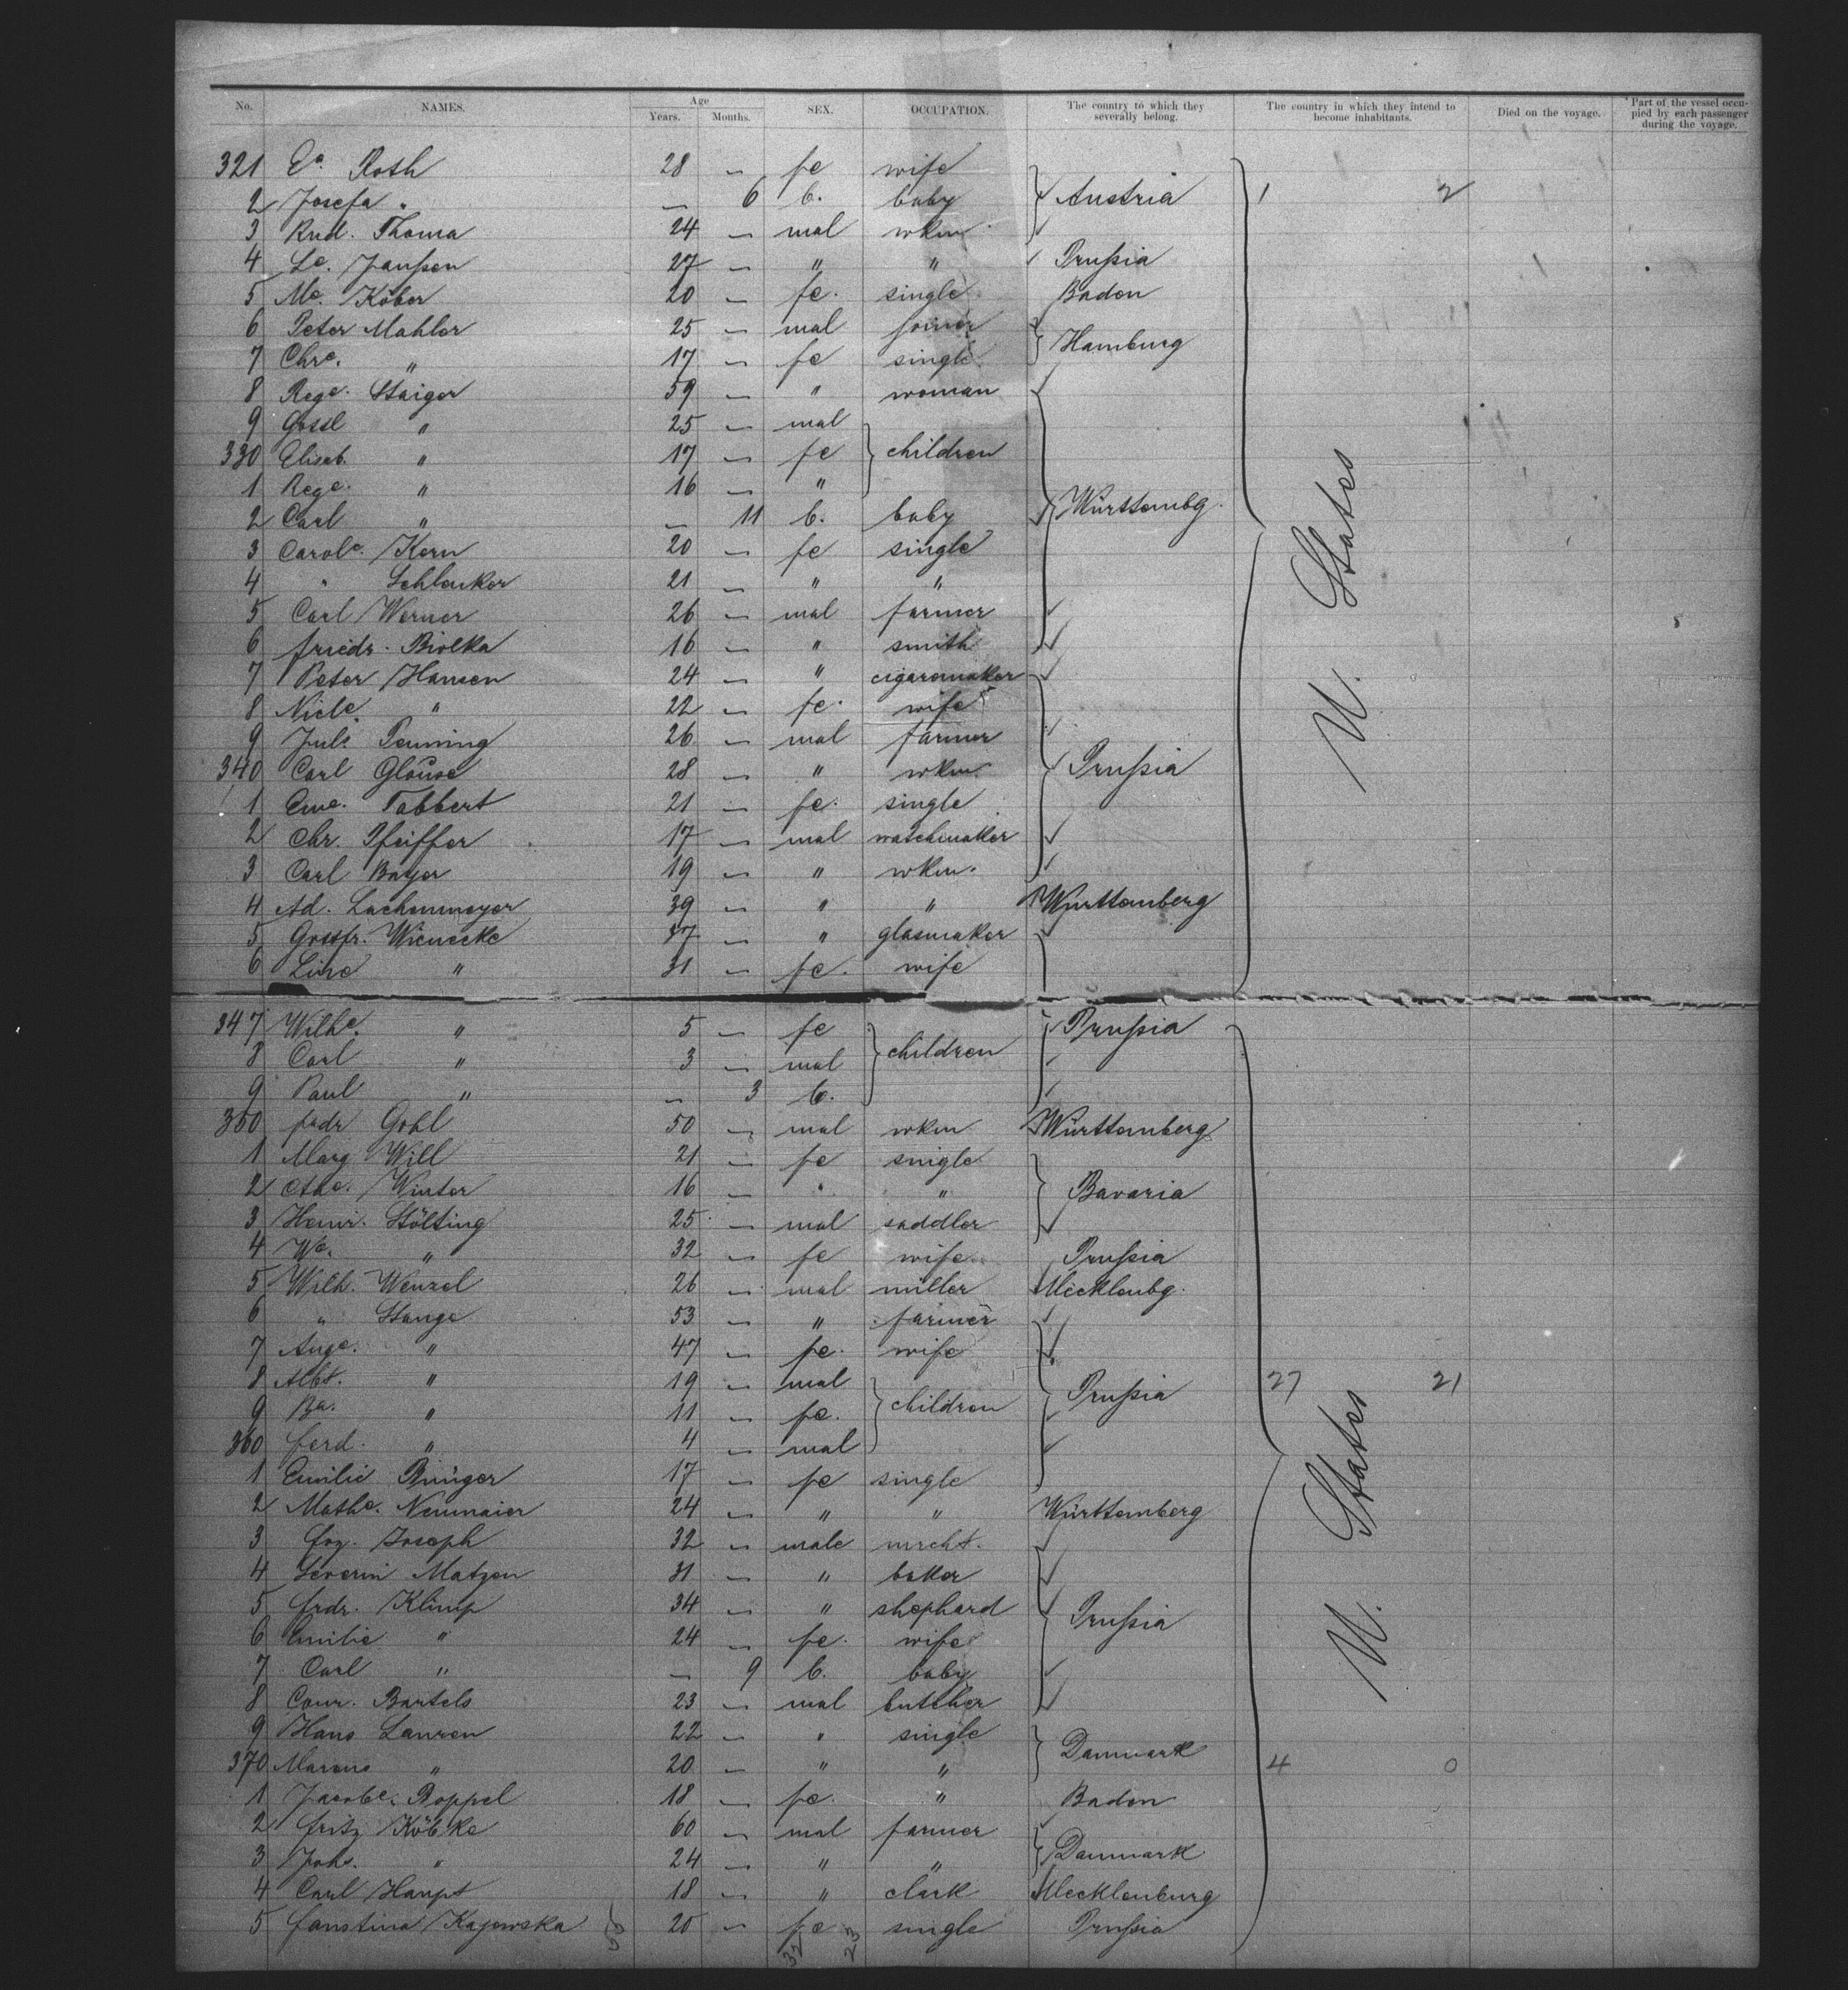 No. NAMES. Age Years. Months. SEX. OCCUPATION. The country to which they severally belong. The country in which they intend to become inhabitants. Died on the voyage. Part of the vessel occupied by each passenger during the voyage.
321 Ea Roth 28 — fe wife
2 Josefa " — 6 b. baby Austria 1 2
3 Rud. Thoma 24 — mal wkm
4 Le. Janßen 27 — " " Prußia
5 Me. Köber 20 — fe. single Baden
6 Peter Mahler 25 — mal joiner
7 Chre. " 17 — fe single Hamburg
8 Rege. Staiger 59 — " woman
9 Gottl " 25 — mal
330 Elisab. " 17 — fe children
1 Rege. " 16 — "
2 Carl " — 11 b. baby Württembg.
3 Carole. Kern 20 — fe single
4 " Schlenker 21 — " "
5 Carl Werner 26 — mal farmer
6 Friedr. Bielka 16 — " smith
7 Peter Hansen 24 — " cigaremaker
8 Nicle. " 22 — fe. wife
9 Juls. Penning 26 — mal farmer
340 Carl Glause 28 — " wkm. Prußia
1 Eme. Tabbert 21 — fe. single
2 Chr. Pfeiffer 17 — mal watchmaker
3 Carl Bayer 19 — " wkm.
4 Ad. Lachenmeyer 39 — " " Württemberg
5 Gottfr. Wienecke 37 — " glasmaker
6 Line " 31 — fe. wife
U. States
347 Wilhe. " 5 — fe Prußia
8 Carl " 3 — mal children
9 Paul " — 3 b.
350 frdr Gohl 50 — mal wkm Württemberg
1 Marg Will 21 — fe single
2 Cthe. Winter 16 — " " Bavaria
3 Henr. Stölting 25 — mal saddler
4 We. " 32 — fe wife Prußia
5 Wilh. Wenzel 26 — mal miller Mecklenbg.
6 " Stange 53 — " farmer
7 Auge. " 47 — fe. wife
8 Albt. " 19 — mal Prußia 27 21
9 Ba. " 11 — fe. children
360 Ferd. " 4 — mal
1 Emilie 17 — fe single
2 Mathe. Neumaier 24 — " " Württemberg
3 Joseph 32 — male mrcht.
4 Severin Matzen 31 — " baker
5 frdr. Klimp 34 — " shephard Prußia
6 Emilie " 24 — fe. wife
7 Carl " — 9 b. baby
8 Conr. Bartels 23 — mal butcher
9 Hans Lauren 22 — " single
370 Marcus " 20 — " " Danmark 4 0
1 Jacobe. Roppel 18 — fe. " Baden
2 Fritz Köbke 60 — mal farmer
3 Johs. " 24 — " " Danmark
4 Carl Haupt 18 — " clark Mecklenburg
5 Faustina Kajewska 20 — fe single Prußia
U. States
55 32 23